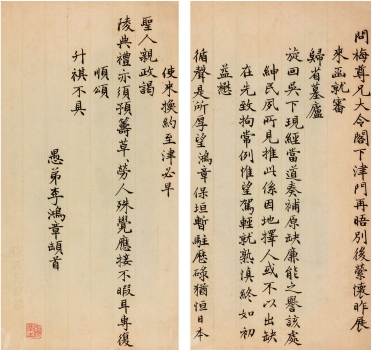 問梅尊兄大令閣下津門再晤別後縈懷昨展
來函就審
歸省墓廬
旋回吳下現經當道奏補原缺廉能之譽該處
紳民夙所見推此係因地擇人或不以出缺
在先致拘常例惟望駕輕就熟慎終如初
益懋
循聲是所厚望鴻章保垣暫駐歷碌猶恒日本
使來換約至津必早
聖人親政謁
陵典禮亦須預籌草草勞人殊覺應接不暇耳專復
順頌
升祺不具
愚弟李鴻章頓首